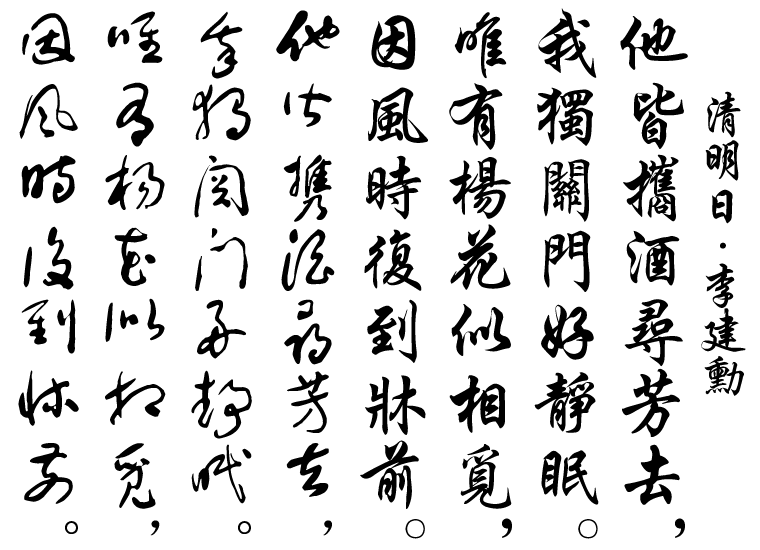 清明日·李建勳
他皆攜酒尋芳去，
我獨關門好靜眠。
唯有楊花似相覓，
因風時復到牀前。
他皆携酒尋芳去，
我獨関门好靜眠。
唯有杨花似相覓，
因风時復到牀前。